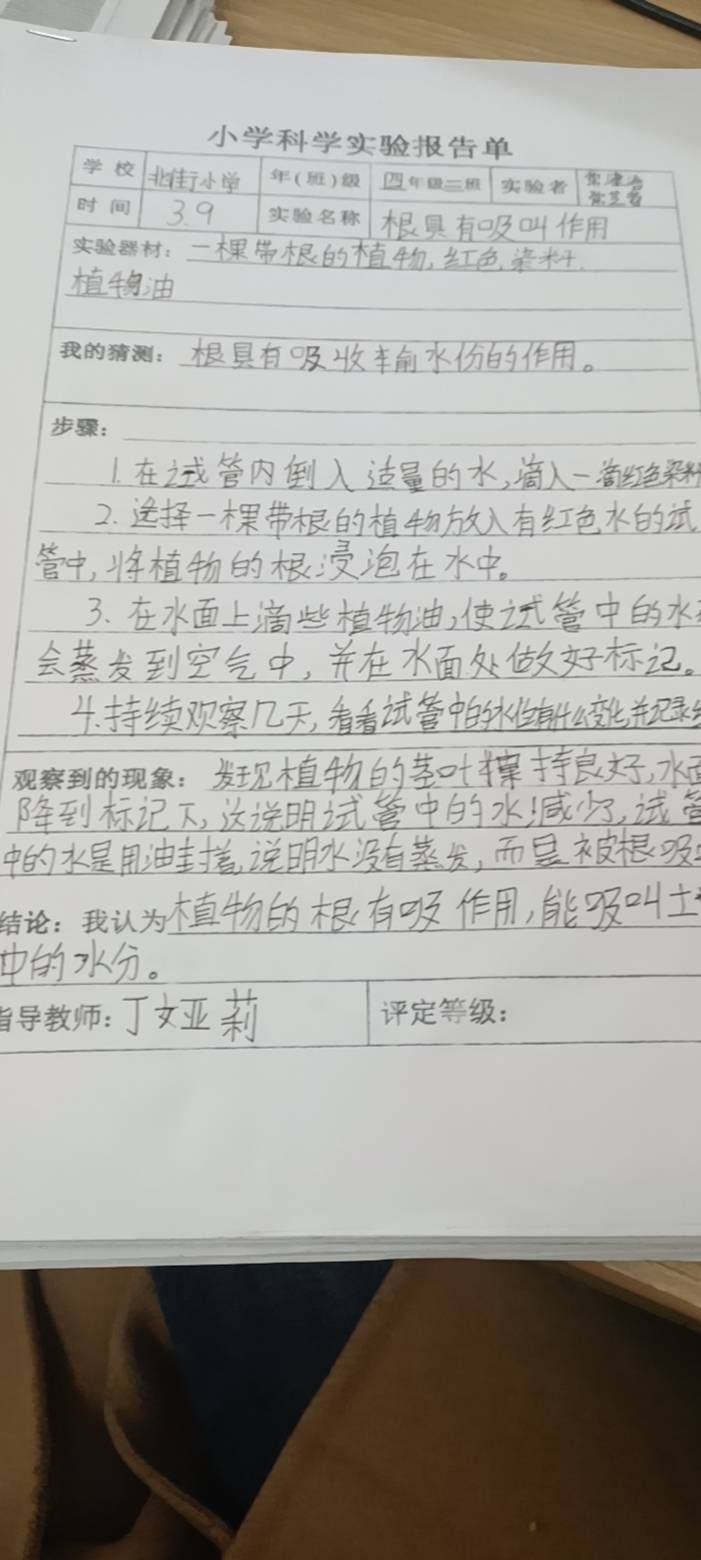 小学科学实验报告单
学校 北街小学 年(班)级 四年级三班 实验者
时间 3.9 实验名称 根具有吸叫作用
实验器材：一棵带根的植物,红色染料.
植物油
我的猜测：根具有吸收输水份的作用。
步骤：
1.在试管内倒入适量的水,滴入一滴红色染料
2.选择一棵带根的植物放入有红色水的试
管中,将植物的根浸泡在水中。
3.在水面上滴些植物油,使试管中的水
会蒸发到空气中,并在水面处做好标记。
4.持续观察几天,看看试管中的水位有什么变化,并记录
观察到的现象：发现植物的茎叶持良好,水面
降到标记下,这说明试管中的水减少了,试管
中的水是用油封着,说明水没有蒸发,而是被根吸
结论：我认为植物的根有吸作用,能吸叫土
中的水分。
指导教师：丁文亚莉 评定等级：